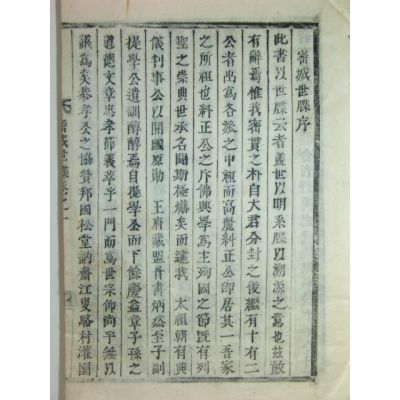 密城世牒序
此書以世牒云者蓋世以明系牒以溯源之意也玆敢
有辭焉惟我密貫之朴自大君分封之後繼有十有二
公者出爲各派之中祖而高麗糾正公卽居其一吾家
之所祖也糾正公之斥佛興學爲主殉國之節旣有列
聖之崇典世承名碩斯極矣而逮我 太祖朝有典
儀判事公以開國原勳 王府藏盟書炳然至子副
提學公遺訓諄諄焉自提學公而下餘慶益章子孫之
遵德文章忠孝節義萃乎一門而爲世宗仰尚乎無以
議爲矣恭孝公之協贊邦國松堂訥齋江叟駱村灌園
密城世牒卷之一